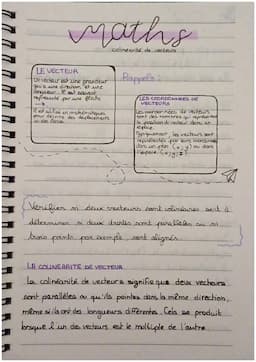 Maths
colinéarité de vecteurs
Rappels :
LE VECTEUR
Un vecteur est une grandeur
qui a une direction et une
longueur. Il est souvent
représenté par une flèche
Il est utilisé en mathématiques
pour décrire des déplacements
ou des forces.
LES COORDONNÉES DE
VECTEURS
Les coordonnées de vecteurs
sont des nombres qui représentent
la position du vecteur dans un
espace.
Typiquement, les vecteurs sont
représentés par leurs coordonnées
dans un plan (x, y) ou dans
l'espace (x; y; z)
Vérifier si deux vecteurs sont colinéaires sert à
déterminer si deux droites sont parallèles ou si
trois points par exemple sont alignés.
LA COLINÉARITÉ DE VECTEUR
La colinéarité de vecteurs signifie que deux vecteurs
sont parallèles ou qu'ils pointes dans la même direction,
même si ils ont des longueurs différentes. Cela se produit
lorsque l'un des vecteurs est le multiple de l'autre